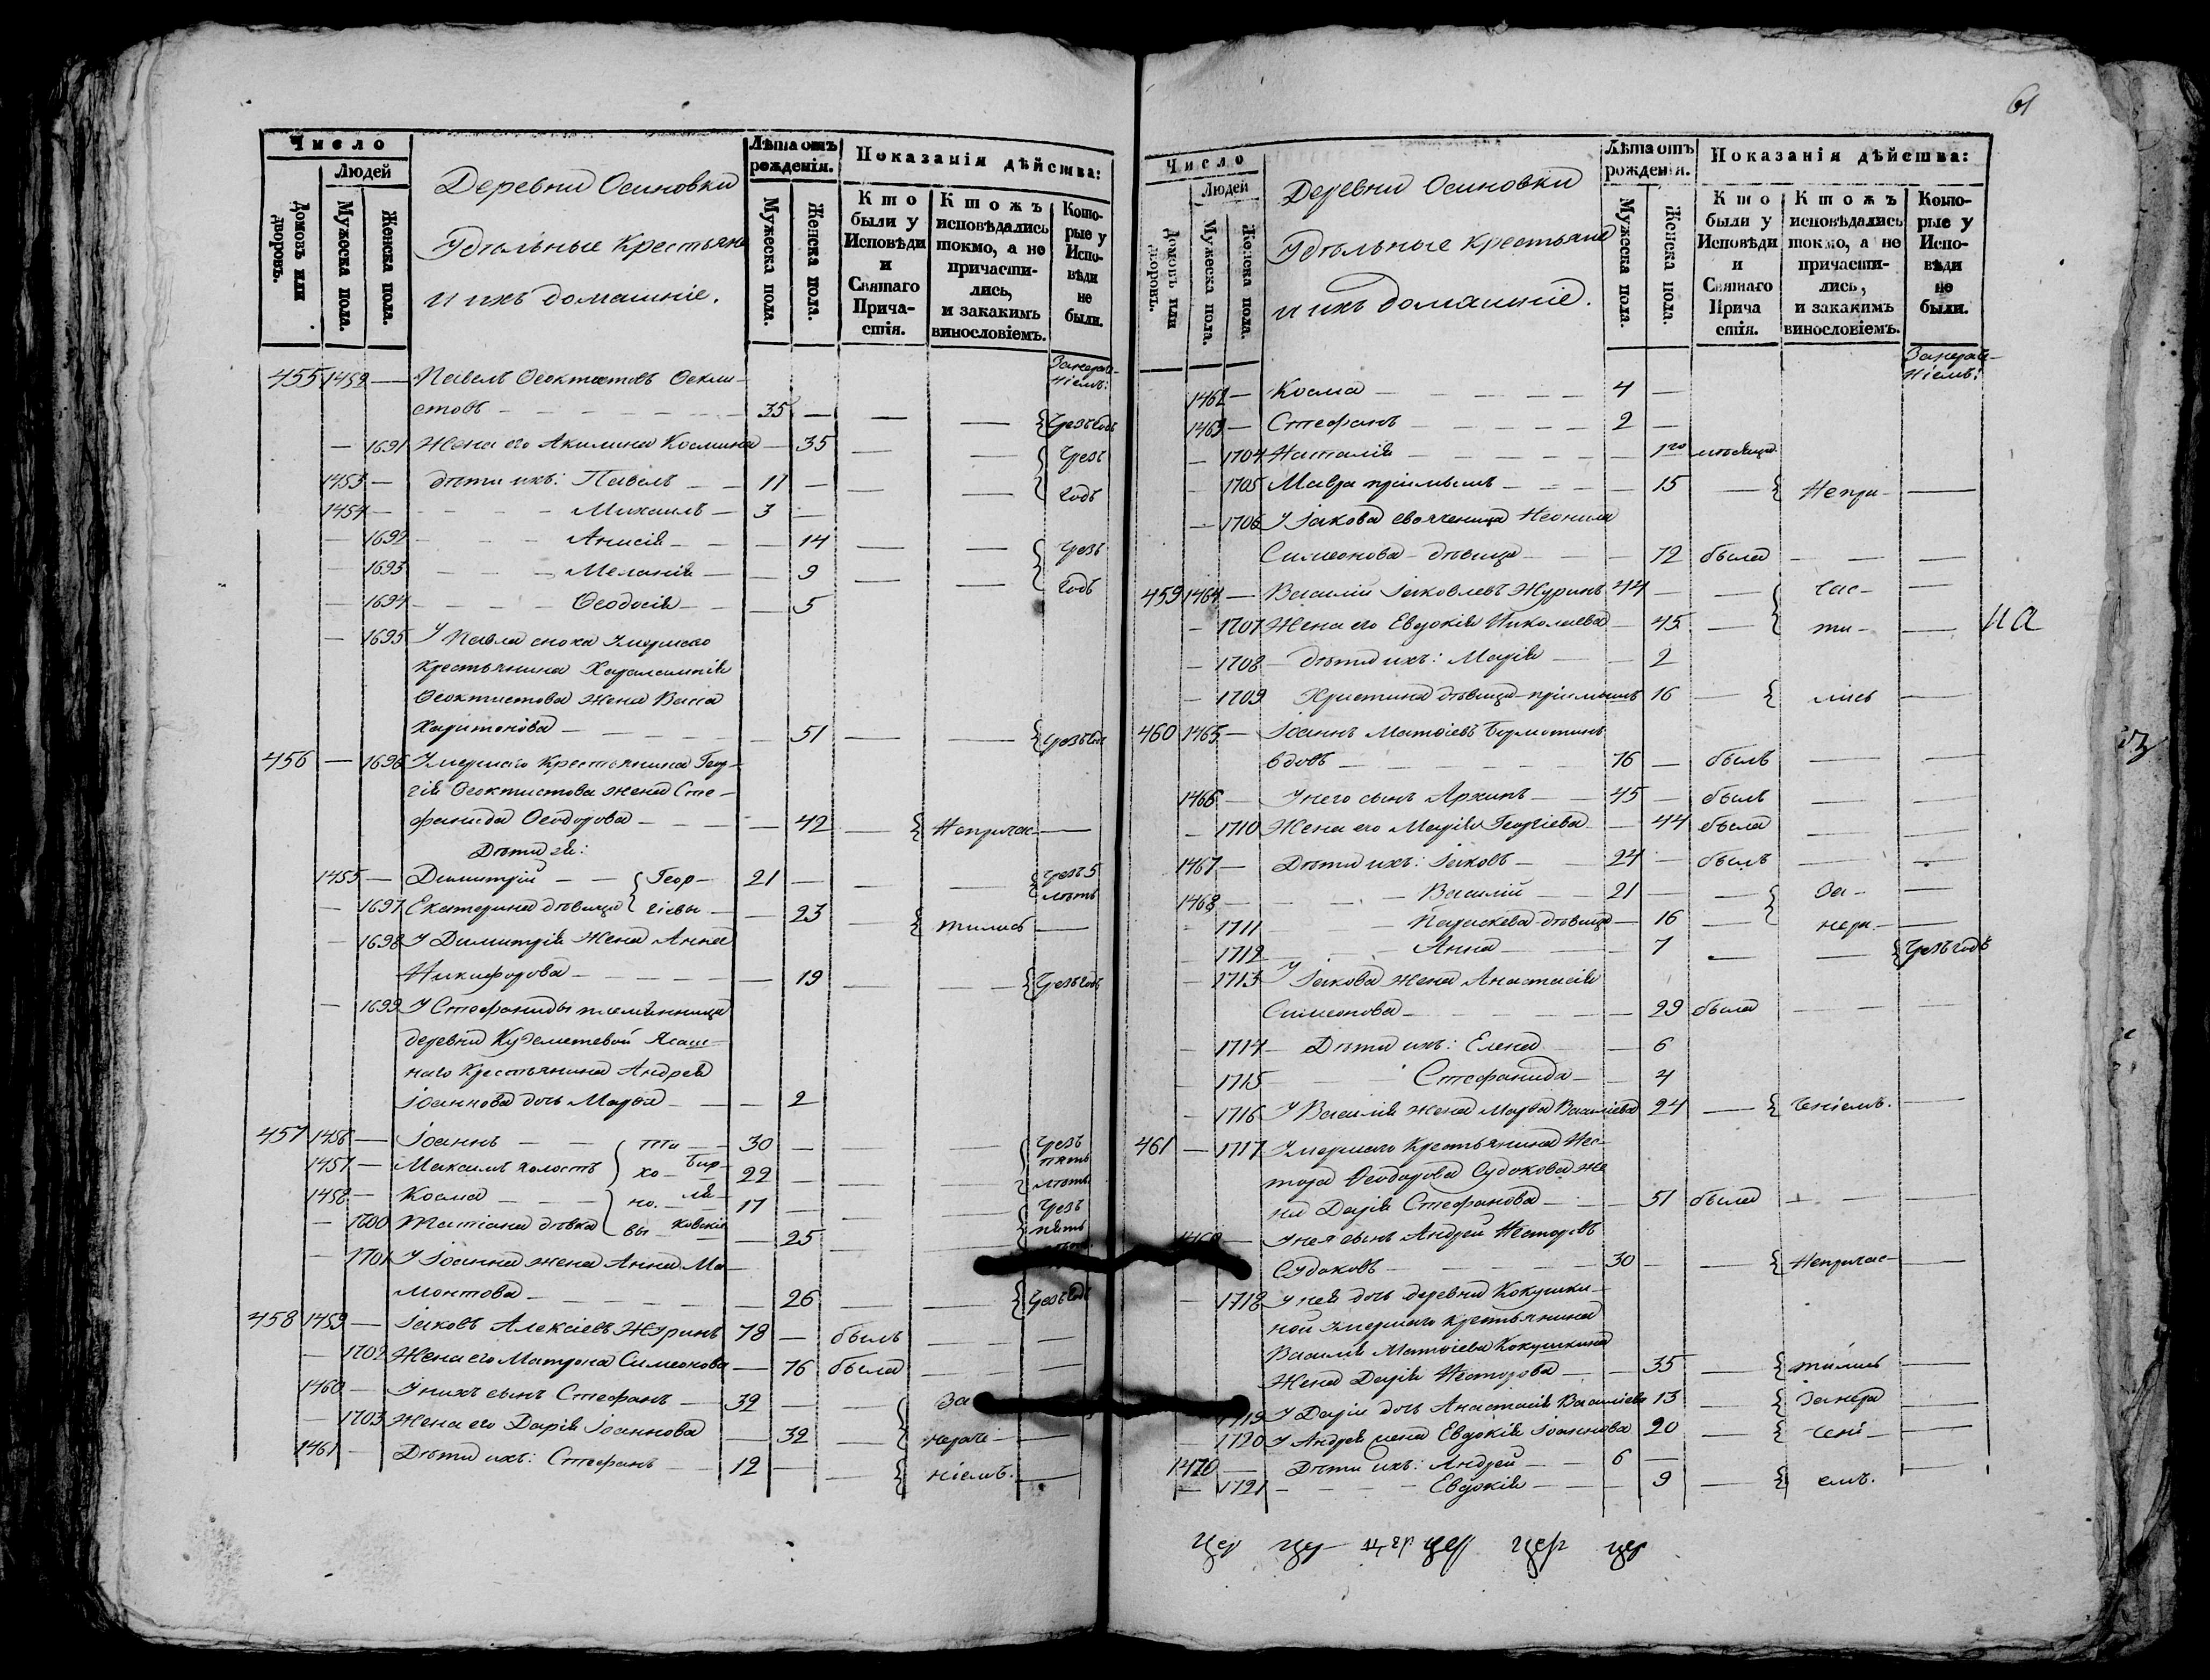 Число
Людей
Домовъ или дворовъ.
Мужеска пола.
Женска пола.
Деревни Осиновки
Удѣльные Крестьяне
и ихъ домашніе.
Лѣта отъ рожденія.
Мужеска пола.
Женска пола.
Показанія дѣйства:
Кто были у Исповѣди и Святаго Причастія.
Ктожъ исповѣдались токмо, а не причастились, и закакимъ винословіемъ.
Которые у Исповѣди не были.
455 1452 — Павелъ Ѳеоктистовъ Ѳекли-
стовъ — 35 — — — Чрезъ годъ
— 1691 Жена его Акилина Космина — 35 — — Чрезъ
1453 — дѣти ихъ: Павелъ — 11 — — — годъ
1454 — Михаилъ — 3 —
— 1692 Анисія — 14 — — Чрезъ
— 1693 Меланія — 9 — — годъ
— 1694 Ѳеодосія — 5
— 1695 У Павла сноха умершаго
крестьянина Харалампія
Ѳеоктистова жена Васса
Харитонова — 51 — — Чрезъ годъ
456 — 1696 Умершаго Крестьянина Геор-
гія Ѳеоктистова жена Сте-
фанида Ѳеодорова — 42 — Непричас- —
Дѣти ея:
1455 — Димитрій — Геор- 21 — — — чрезъ 5 лѣтъ
— 1697 Екатерина дѣвица гіевы — 23 — тились —
— 1698 У Димитрія жена Анна
Никифорова — 19 — — Чрезъ годъ
— 1699 У Стефаниды племянница
деревни Куземетевой Ясаш-
наго Крестьянина Андрея
Іоаннова дочь Марѳа — 2
457 1456 — Іоаннъ — 30 — — — Чрезъ
1457 — Максимъ холостъ 22 — — — пять лѣтъ
1458 — Косма — 17 — — — Чрезъ
— 1700 Татіана дѣвка — 25 — — пять
— 1701 У Іоанна жена Анна Ма-
монтова — 26 — — Чрезъ годъ
458 1459 — Іаковъ Алексіевъ Журинъ 78 — былъ — —
— 1702 Жена его Матрона Симеонова — 76 была — —
1460 — У нихъ сынъ Стефанъ — 39 — — За
— 1703 Жена его Дарія Іоаннова — 32 — нераче- —
1461 — Дѣти ихъ: Стефанъ — 12 — — ніемъ. —
61
Число
Людей
Домовъ или дворовъ.
Мужеска пола.
Женска пола.
Деревни Осиновки
Удѣльные Крестьяне
и ихъ домашніе.
Лѣта отъ рожденія.
Мужеска пола.
Женска пола.
Показанія дѣйства:
Кто были у Исповѣди и Святаго Прича стія.
Ктожъ исповѣдались токмо, а не причастились, и закакимъ винословіемъ.
Которые у Исповѣди не были.
1462 — Косма — 4 —
1463 — Стефанъ — 2 —
— 1704 Наталія — 1го мѣсяца
— 1705 Мавра пріемышъ — 15 — Непри- —
— 1706 У Іакова своячница Неонила
Симеонова дѣвица — 72 была — —
459 1464 — Василій Іаковлевъ Журинъ 44 — — час- —
— 1707 Жена его Евдокія Николаева — 45 — ти- —
— 1708 дѣти ихъ: Марія — 2
— 1709 Христина дѣвица пріемышъ 16 — лись —
460 1465 — Іоаннъ Матѳіевъ Бурмистинъ
вдовъ — 76 — былъ — —
1466 — У него сынъ Архипъ — 45 — былъ — —
— 1710 Жена его Марія Георгіева — 44 была — —
1467 — Дѣти ихъ: Іаковъ — 24 — былъ — —
1468 — Василій — 21 — — За- —
— 1711 Параскева дѣвица — 16 — нера- —
— 1712 Анна — 7 — — Чрезъ годъ
— 1713 У Іакова жена Анастасія
Симеонова — 29 была — —
— 1714 Дѣти ихъ: Елена — 6
— 1715 Стефанида — 4
— 1716 У Василія жена Марѳа Василіева 24 — ченіемъ. —
461 — 1717 Умершаго Крестьянина Нес-
тора Ѳеодорова Судокова же
на Дарія Стефанова — 51 была — —
— У нея сынъ Андрей Несторовъ
Судоковъ — 30 — — Непричас- —
— 1718 У нея дочь деревни Кокушки-
ной умершаго крестьянина
Василія Матѳіева Кокушкина
Жена Дарія Несторова — 35 — тились —
1719 У Даріи дочь Анастасія Василіева 13 — Занера —
— 1720 У Андрея жена Евдокія Іоаннова 20 — чені- —
1470 — Дѣти ихъ: Андрей — 6 —
— 1721 Евдокія — 9 — емъ.
цер цер цер цер цер цер